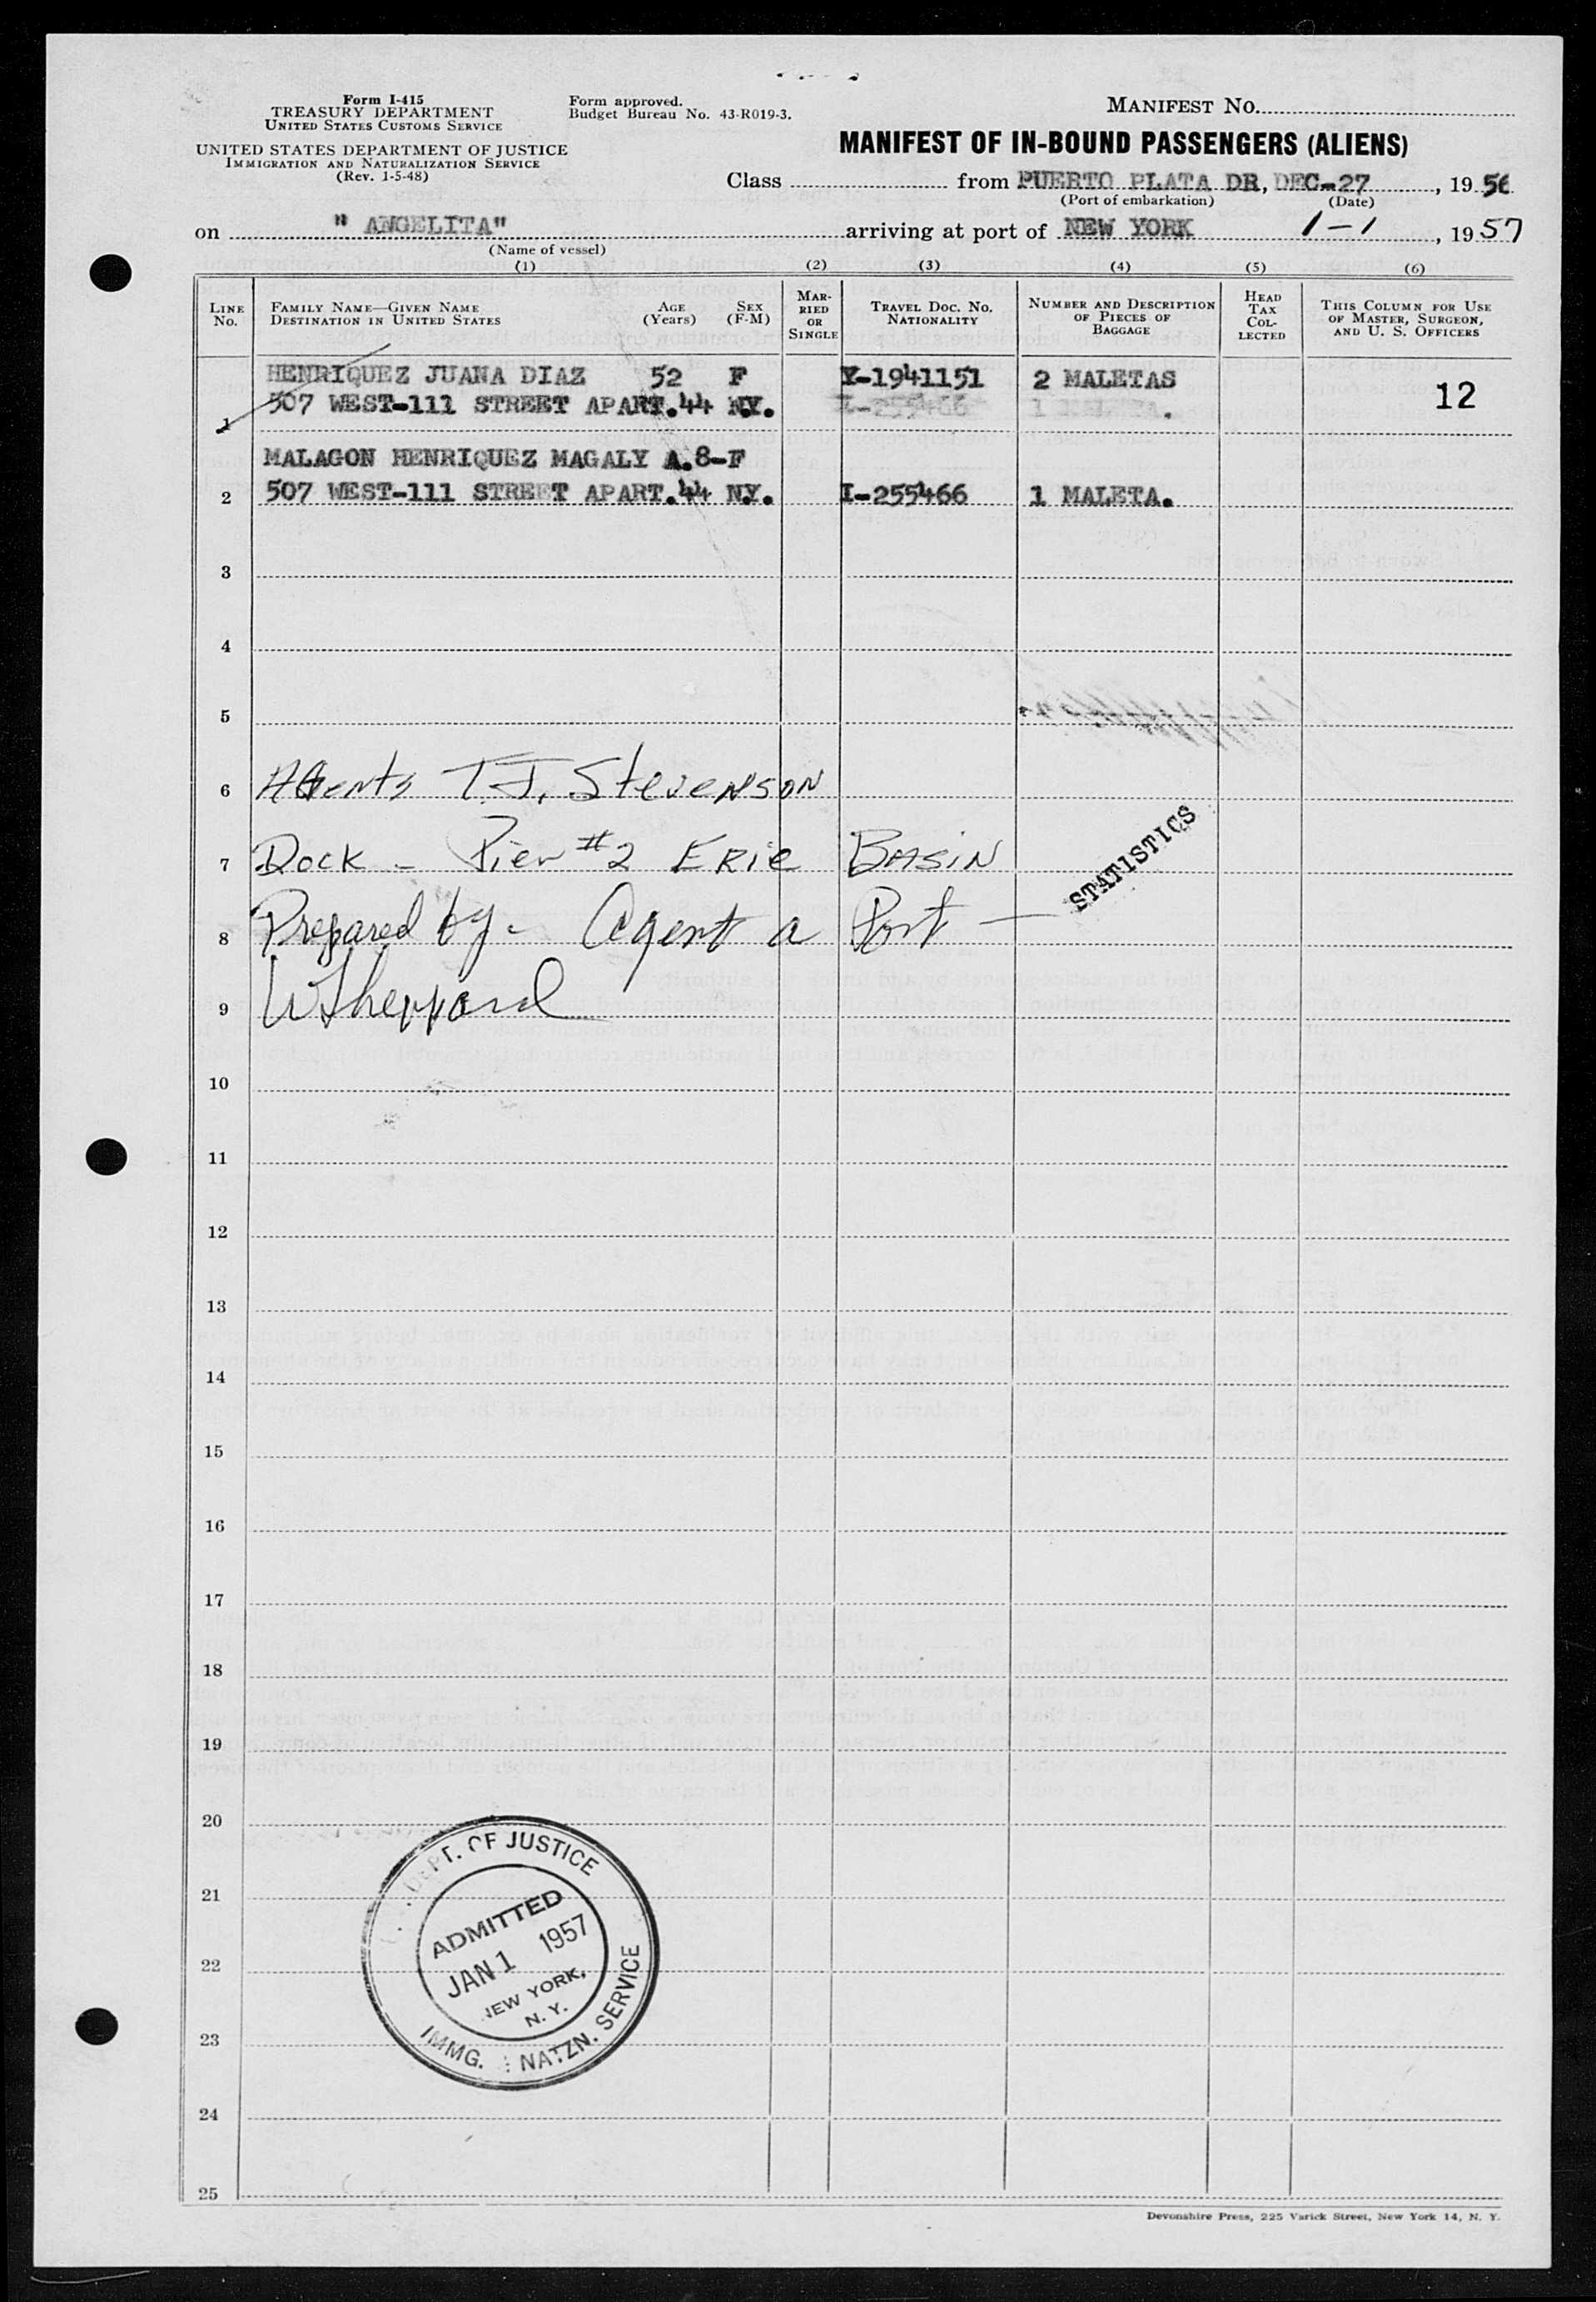 Form I-415
TREASURY DEPARTMENT
UNITED STATES CUSTOMS SERVICE
UNITED STATES DEPARTMENT OF JUSTICE
IMMIGRATION AND NATURALIZATION SERVICE
(Rev. 1-5-48)
Form approved.
Budget Bureau No. 43-R019-3.
MANIFEST No.
MANIFEST OF IN-BOUND PASSENGERS (ALIENS)
Class from PUERTO PLATA DR, DEC-27, 1956
(Port of embarkation) (Date)
on "ANGELITA" arriving at port of NEW YORK 1-1, 1957
(Name of vessel)
(1) (2) (3) (4) (5) (6)
LINE No. FAMILY NAME—GIVEN NAME DESTINATION IN UNITED STATES AGE (Years) SEX (F-M) MARRIED OR SINGLE TRAVEL DOC. NO. NATIONALITY NUMBER AND DESCRIPTION OF PIECES OF BAGGAGE HEAD TAX COLLECTED THIS COLUMN FOR USE OF MASTER, SURGEON, AND U. S. OFFICERS
HENRIQUEZ JUANA DIAZ 52 F Y-1941151 2 MALETAS
1 507 WEST-111 STREET APART.44 N.Y. I-255466 1 MALETA. 12
MALAGON HENRIQUEZ MAGALY A.8-F
2 507 WEST-111 STREET APART.44 N.Y. I-255466 1 MALETA.
3
4
5
6 Agents T.J. Stevenson
7 Dock - Pier #2 Erie Basin
STATISTICS
8 Prepared by - Agent a Port —
9 W Sheppard
10
11
12
13
14
15
16
17
18
19
20
21
22
23
24
25
DEPT. OF JUSTICE
ADMITTED
JAN 1 1957
NEW YORK,
N. Y.
IMMG. NATZN. SERVICE
Devonshire Press, 225 Varick Street, New York 14, N. Y.